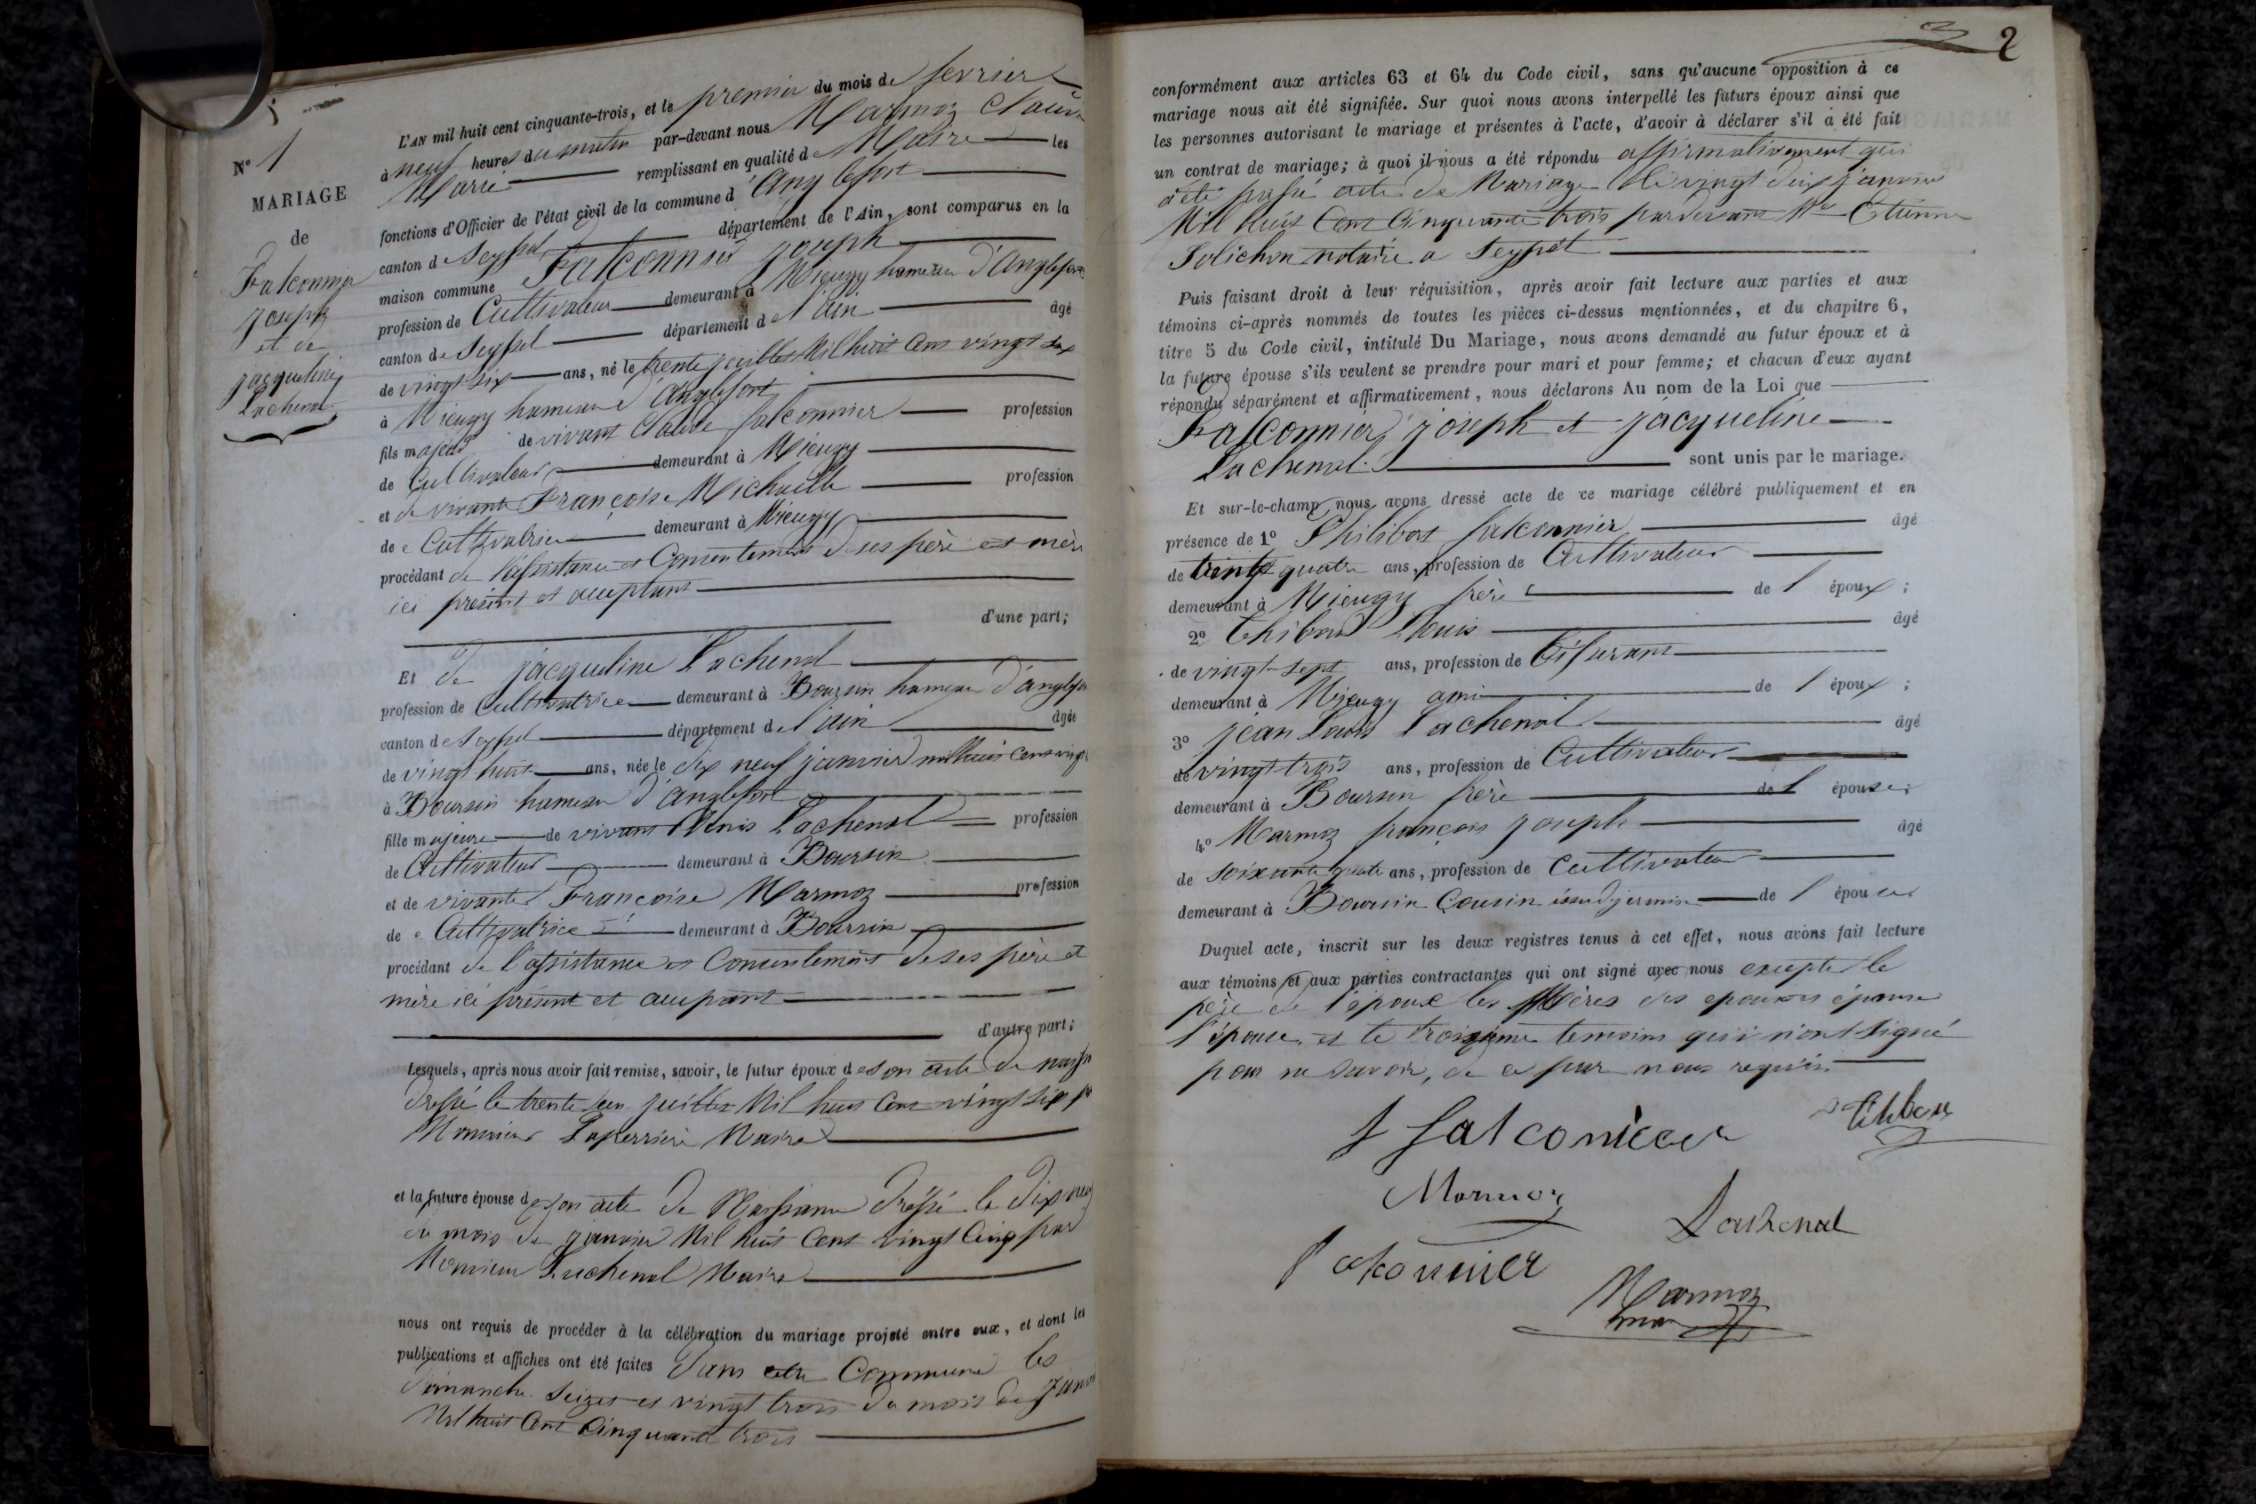 N° 1
MARIAGE
de
Falconnier
joseph
et de
jacqueline
Lachenal
L'AN mil huit cent cinquante-trois, et le premier du mois de fevrier
à neuf heures du matin par-devant nous Marmoz Claude
Marie remplissant en qualité de Maire les
fonctions d'Officier de l'état civil de la commune d'Anglefort
canton de Seyssel département de l'Ain, sont comparus en la
maison commune Falconnier joseph
profession de Cultivateur demeurant à Mieugy hameau d'Anglefort
canton de Seyssel département de l'ain âgé
de vingt six ans, né le trente juillet Mil huit Cent vingt six
à Mieugy hameau d'anglefort
fils majeur de vivant Claude falconnier profession
de Cultivateur demeurant à Mieugy
et de vivante Françoise Michaille profession
de Cultivatrice demeurant à Mieugy
procédant de l'assistance et Consentement de ses père et mère
ici présent et acceptant
d'une part;
Et de jacqueline Lachenal
profession de Cultivatrice demeurant à Boursin hameau d'anglefort
canton de Seyssel département de l'ain âgée
de vingt huit ans, née le dix neuf janvier mil huit Cent vingt
à Boursin hameau d'anglefort
fille majeure de vivant Denis Lachenal profession
de Cultivateur demeurant à Boursin
et de vivante Françoise Marmoz profession
de Cultivatrice demeurant à Boursin
procédant de l'assistance et Consentement de ses père et
mère ici présent et acceptant
d'autre part;
Lesquels, après nous avoir fait remise, savoir, le futur époux de son acte de naiss
dressé le trente un juillet Mil huit Cent vingt six par
Monsieur Laperrière Maire
et la future épouse de son acte de Naissance dressé le dix neuf
du mois de janvier Mil huit Cent vingt Cinq par
Monsieur Lachenal Maire
nous ont requis de procéder à la célébration du mariage projeté entre eux, et dont les
publications et affiches ont été faites dans cette Commune les
dimanche seizes et vingt trois du mois de janvi
Mil huit Cent Cinquante trois
2
conformément aux articles 63 et 64 du Code civil, sans qu'aucune opposition à ce
mariage nous ait été signifiée. Sur quoi nous avons interpellé les futurs époux ainsi que
les personnes autorisant le mariage et présentes à l'acte, d'avoir à déclarer s'il a été fait
un contrat de mariage; à quoi il nous a été répondu affirmativement qui
a été passé acte de Mariage le vingt deux janvier
Mil huit Cent Cinquante trois pardevant Me Etienne
Jolichon notaire a Seyssel
Puis faisant droit à leur réquisition, après avoir fait lecture aux parties et aux
témoins ci-après nommés de toutes les pièces ci-dessus mentionnées, et du chapitre 6,
titre 5 du Code civil, intitulé Du Mariage, nous avons demandé au futur époux et à
la future épouse s'ils veulent se prendre pour mari et pour femme; et chacun d'eux ayant
répondu séparément et affirmativement, nous déclarons Au nom de la Loi que
Falconnier joseph et jacqueline
Lachenal sont unis par le mariage.
Et sur-le-champ nous avons dressé acte de ce mariage célébré publiquement et en
présence de 1° Philibert falconnier âgé
de trente quatre ans, profession de Cultivateur
demeurant à Mieugy frère de l époux;
2° Thiboud Louis âgé
de vingt-sept ans, profession de Tisserant
demeurant à Mieugy ami de l époux;
3° jean Louis Lachenal âgé
de vingt trois ans, profession de Cultivateur
demeurant à Boursin frère de l épouse;
4° Marmoz françois joseph âgé
de soixante quatre ans, profession de Cultivateur
demeurant à Boursin Cousin issu de germain de l épouse
Duquel acte, inscrit sur les deux registres tenus à cet effet, nous avons fait lecture
aux témoins et aux parties contractantes qui ont signé avec nous excepté le
père de l'époux les Mères des epoux
l'épouse et le troisieme temoins qui n'ont signé
pour ne savoir, de ce par nous requis.
J falconnier
Thiboud
Marmoz
Lachenal
falconnier
Marmoz
maire